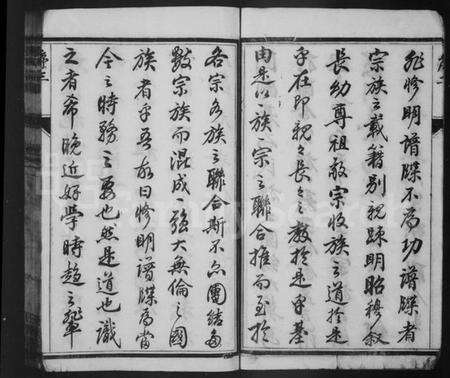 非修明譜牒不為功譜牒者
宗族之載籍別親疎明昭穆敘
長幼尊祖敬宗收族之道於是
乎在即親親長長之教於是乎基
由是以一族一宗之聯合推而至於
各宗各族之聯合斯不亦團結
數宗族而混成一強大無倫之國
族者乎吾故曰修明譜牒為當
今之時務之要也然是道也識
之者希晚近好學時趨之輩
序三